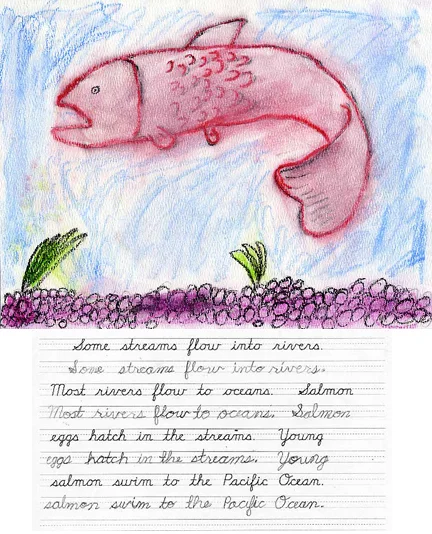 Some streams flow into rivers.
Some streams flow into rivers.
Most rivers flow to oceans. Salmon
Most rivers flow to oceans. Salmon
eggs hatch in the streams. Young
eggs hatch in the streams. Young
salmon swim to the Pacific Ocean.
salmon swim to the Pacific Ocean.